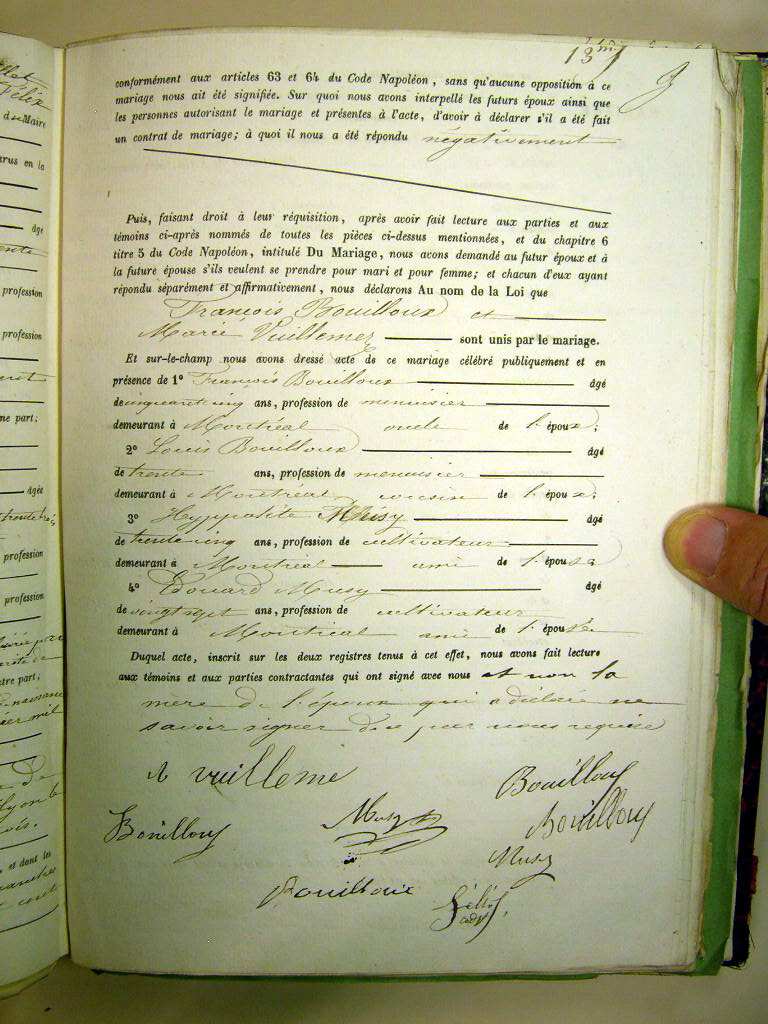 13
conformément aux articles 63 et 64 du Code Napoléon, sans qu'aucune opposition à ce
mariage nous ait été signifiée. Sur quoi nous avons interpellé les futurs époux ainsi que
les personnes autorisant le mariage et présentes à l'acte, d'avoir à déclarer s'il a été fait
un contrat de mariage; à quoi il nous a été répondu négativement
Puis, faisant droit à leur réquisition, après avoir fait lecture aux parties et aux
témoins ci-après nommés de toutes les pièces ci-dessus mentionnées, et du chapitre 6
titre 5 du Code Napoléon, intitulé Du Mariage, nous avons demandé au futur époux et à
la future épouse s'ils veulent se prendre pour mari et pour femme; et chacun d'eux ayant
répondu séparément et affirmativement, nous déclarons Au nom de la Loi que
François Bouilloux et
Marie Vuillemez sont unis par le mariage.
Et sur-le-champ nous avons dressé acte de ce mariage célébré publiquement et en
présence de 1° François Bouilloux âgé
de cinquante cinq ans, profession de menuisier
demeurant à Montréal oncle de l'époux;
2° Louis Bouilloux âgé
de trente ans, profession de menuisier
demeurant à Montréal cousin de l'époux;
3° Hyppolite Musy âgé
de trente cinq ans, profession de cultivateur
demeurant à Montréal ami de l'épouse
4° Édouard Musy âgé
de vingt sept ans, profession de cultivateur
demeurant à Montréal ami de l'épouse
Duquel acte, inscrit sur les deux registres tenus à cet effet, nous avons fait lecture
aux témoins et aux parties contractantes qui ont signé avec nous et non la
mère de l'époux qui a déclaré ne
savoir signer de ce par nous requise
vuilleme
Bouilloux
Bouilloux
Musy
Bouilloux
Musy
Bouilloux
d Maire
âgé
profession
profession
ne part;
âgée
profession
profession
tre part,
et dont les